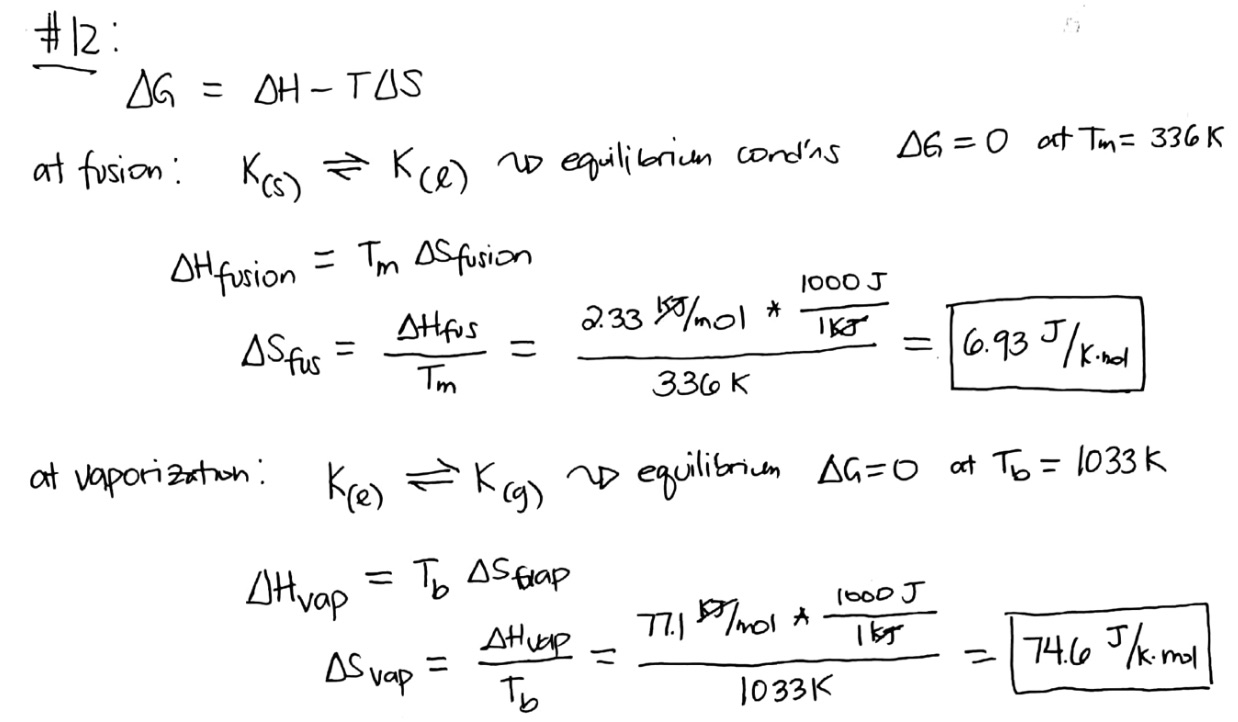 #12:
ΔG = ΔH - TΔS
at fusion: K(s) ⇌ K(l) ⇝ equilibrium cond'ns ΔG = 0 at Tm = 336 K
ΔHfusion = Tm ΔSfusion
ΔSfus = ΔHfus / Tm = 2.33 kJ/mol * 1000 J / 1 kJ / 336 K = 6.93 J/K·mol
at vaporization: K(l) ⇌ K(g) ⇝ equilibrium ΔG=0 at Tb = 1033 K
ΔHvap = Tb ΔSvap
ΔSvap = ΔHvap / Tb = 77.1 kJ/mol * 1000 J / 1 kJ / 1033K = 74.6 J/K·mol